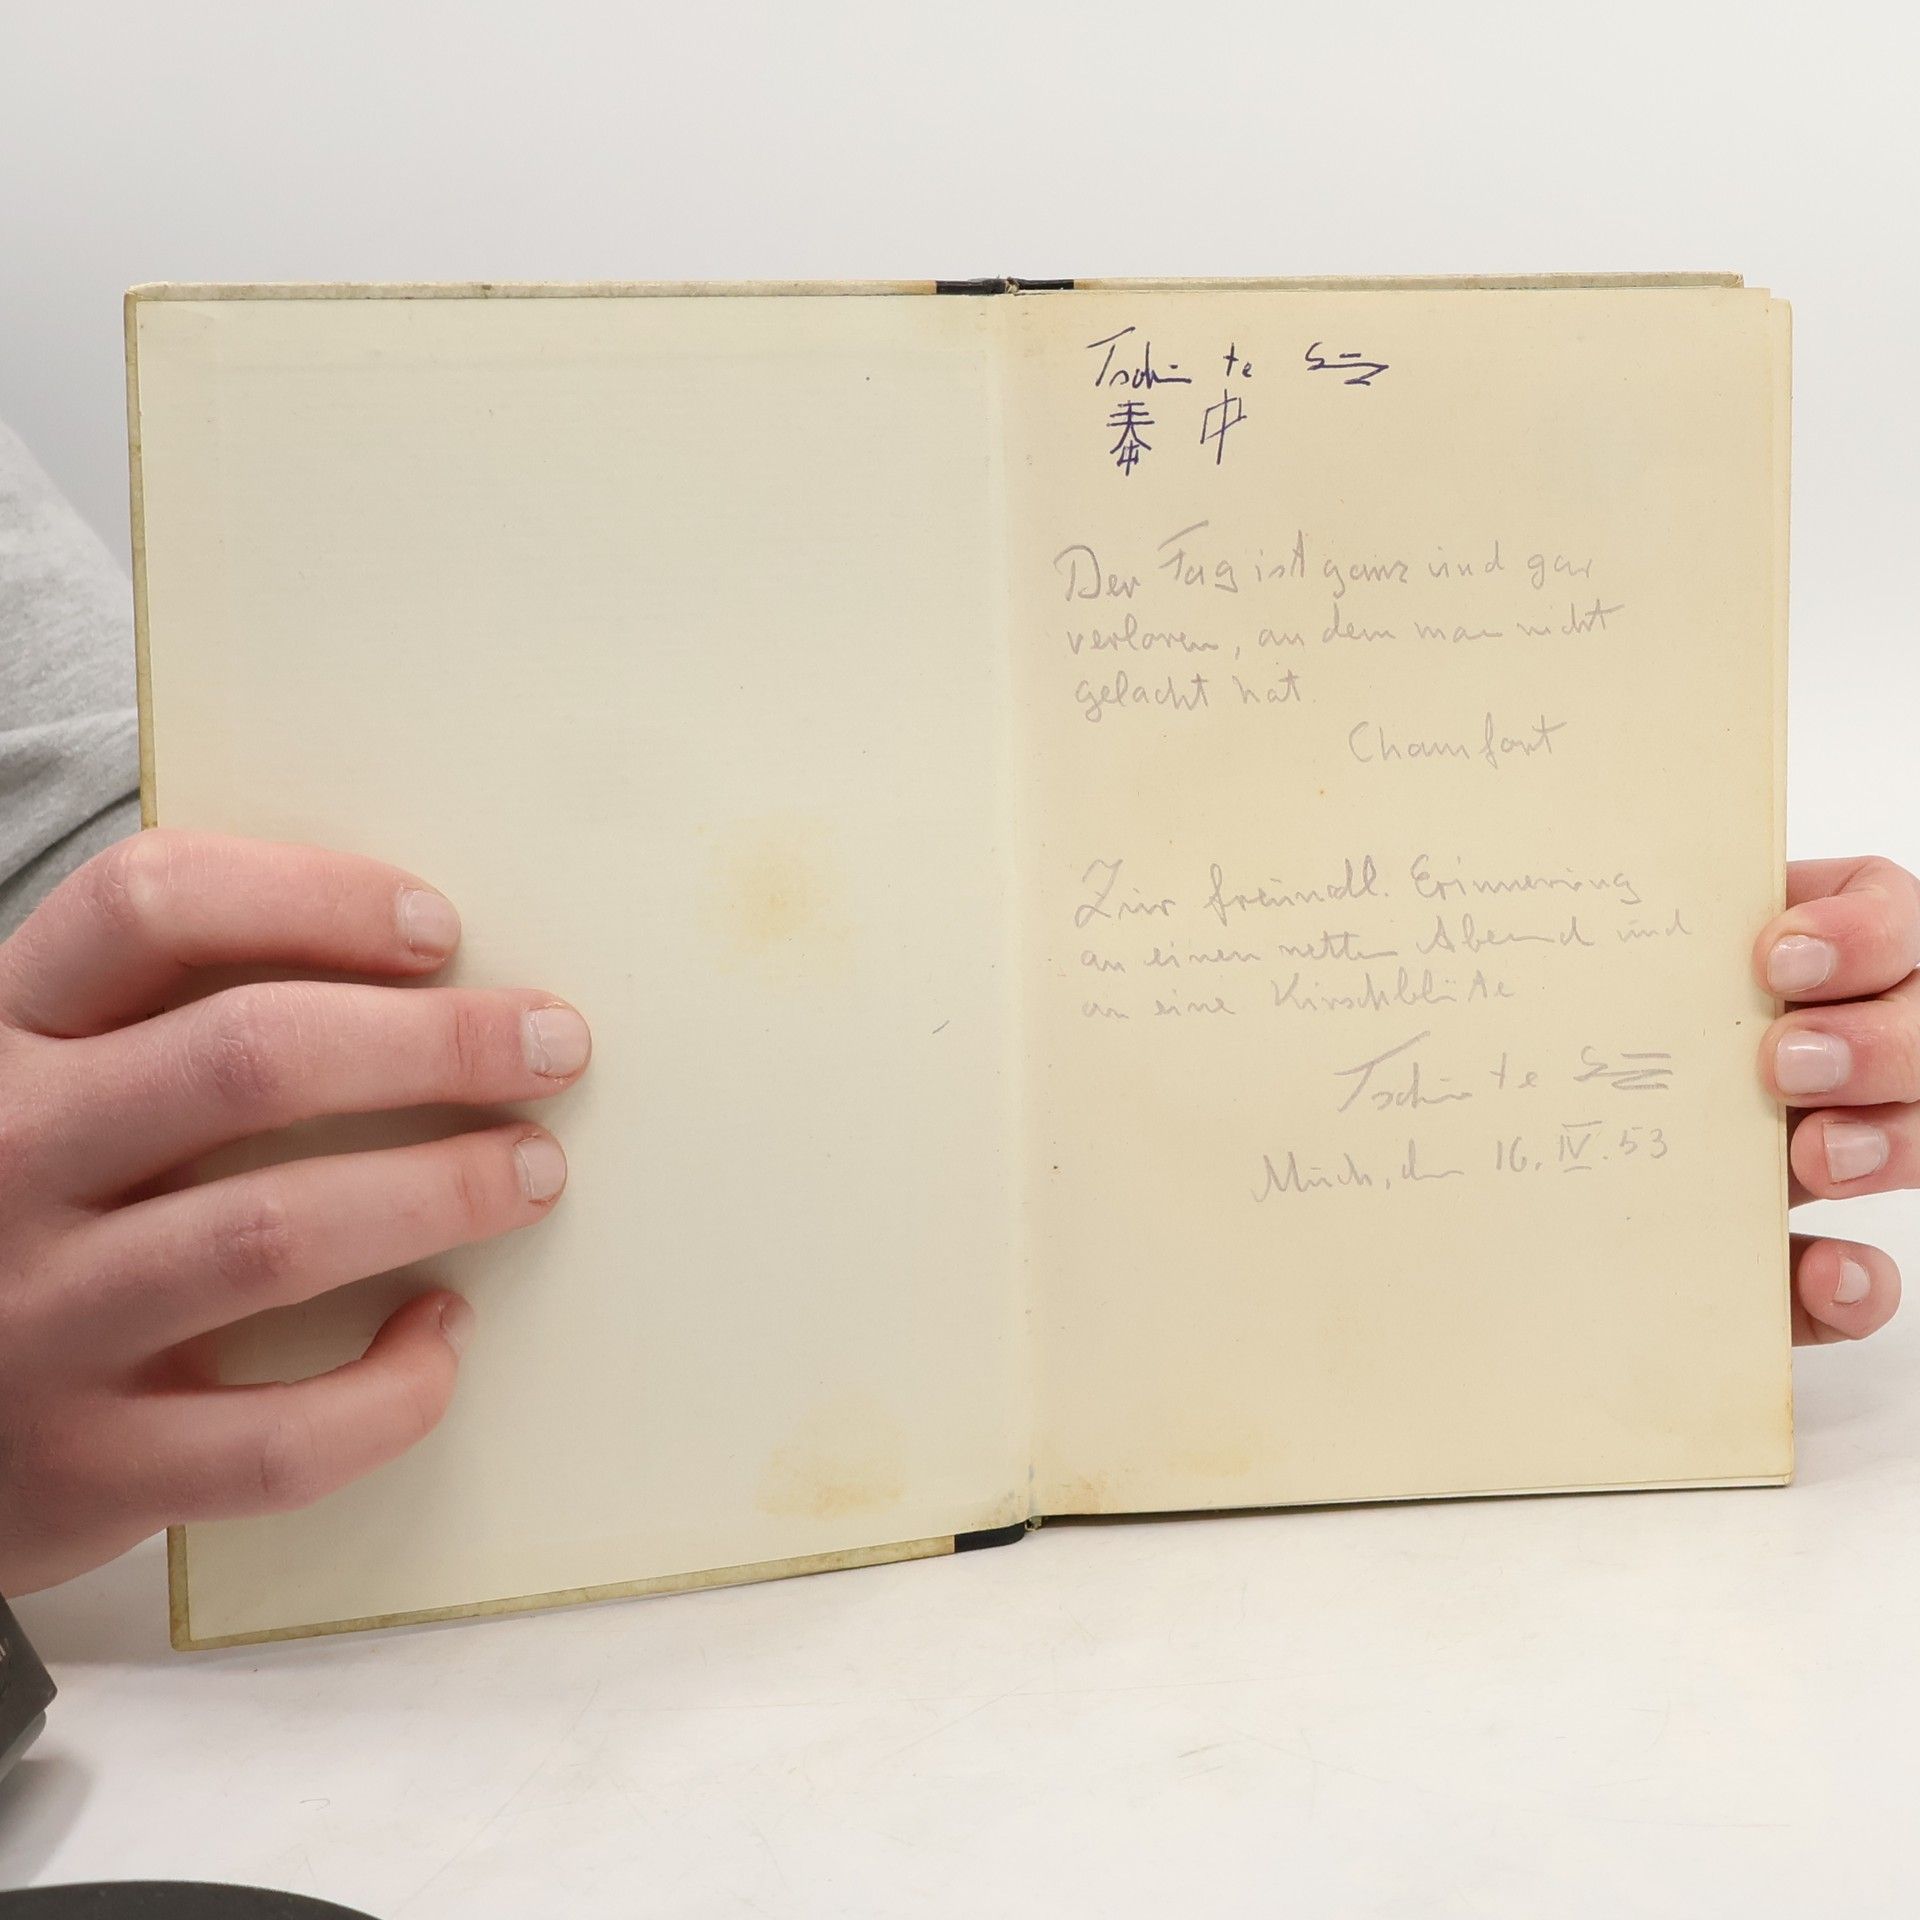 Tschin te
秦 中
Der Tag ist ganz und gar
verloren, an dem man nicht
gelacht hat.
Chamfort
Zur freundl. Erinnerung
an einen netten Abend und
an eine Kirschblüte
Tschin te
Münch, den 16. IV. 53